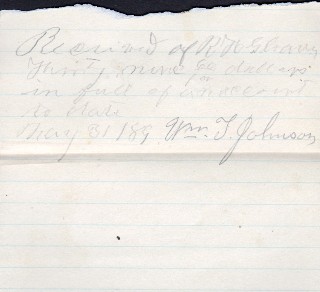 Received of R H Gleaves
Thirty nine 60/100 dollars
in full of account
to date
May 31 189 Wm. T. Johnson